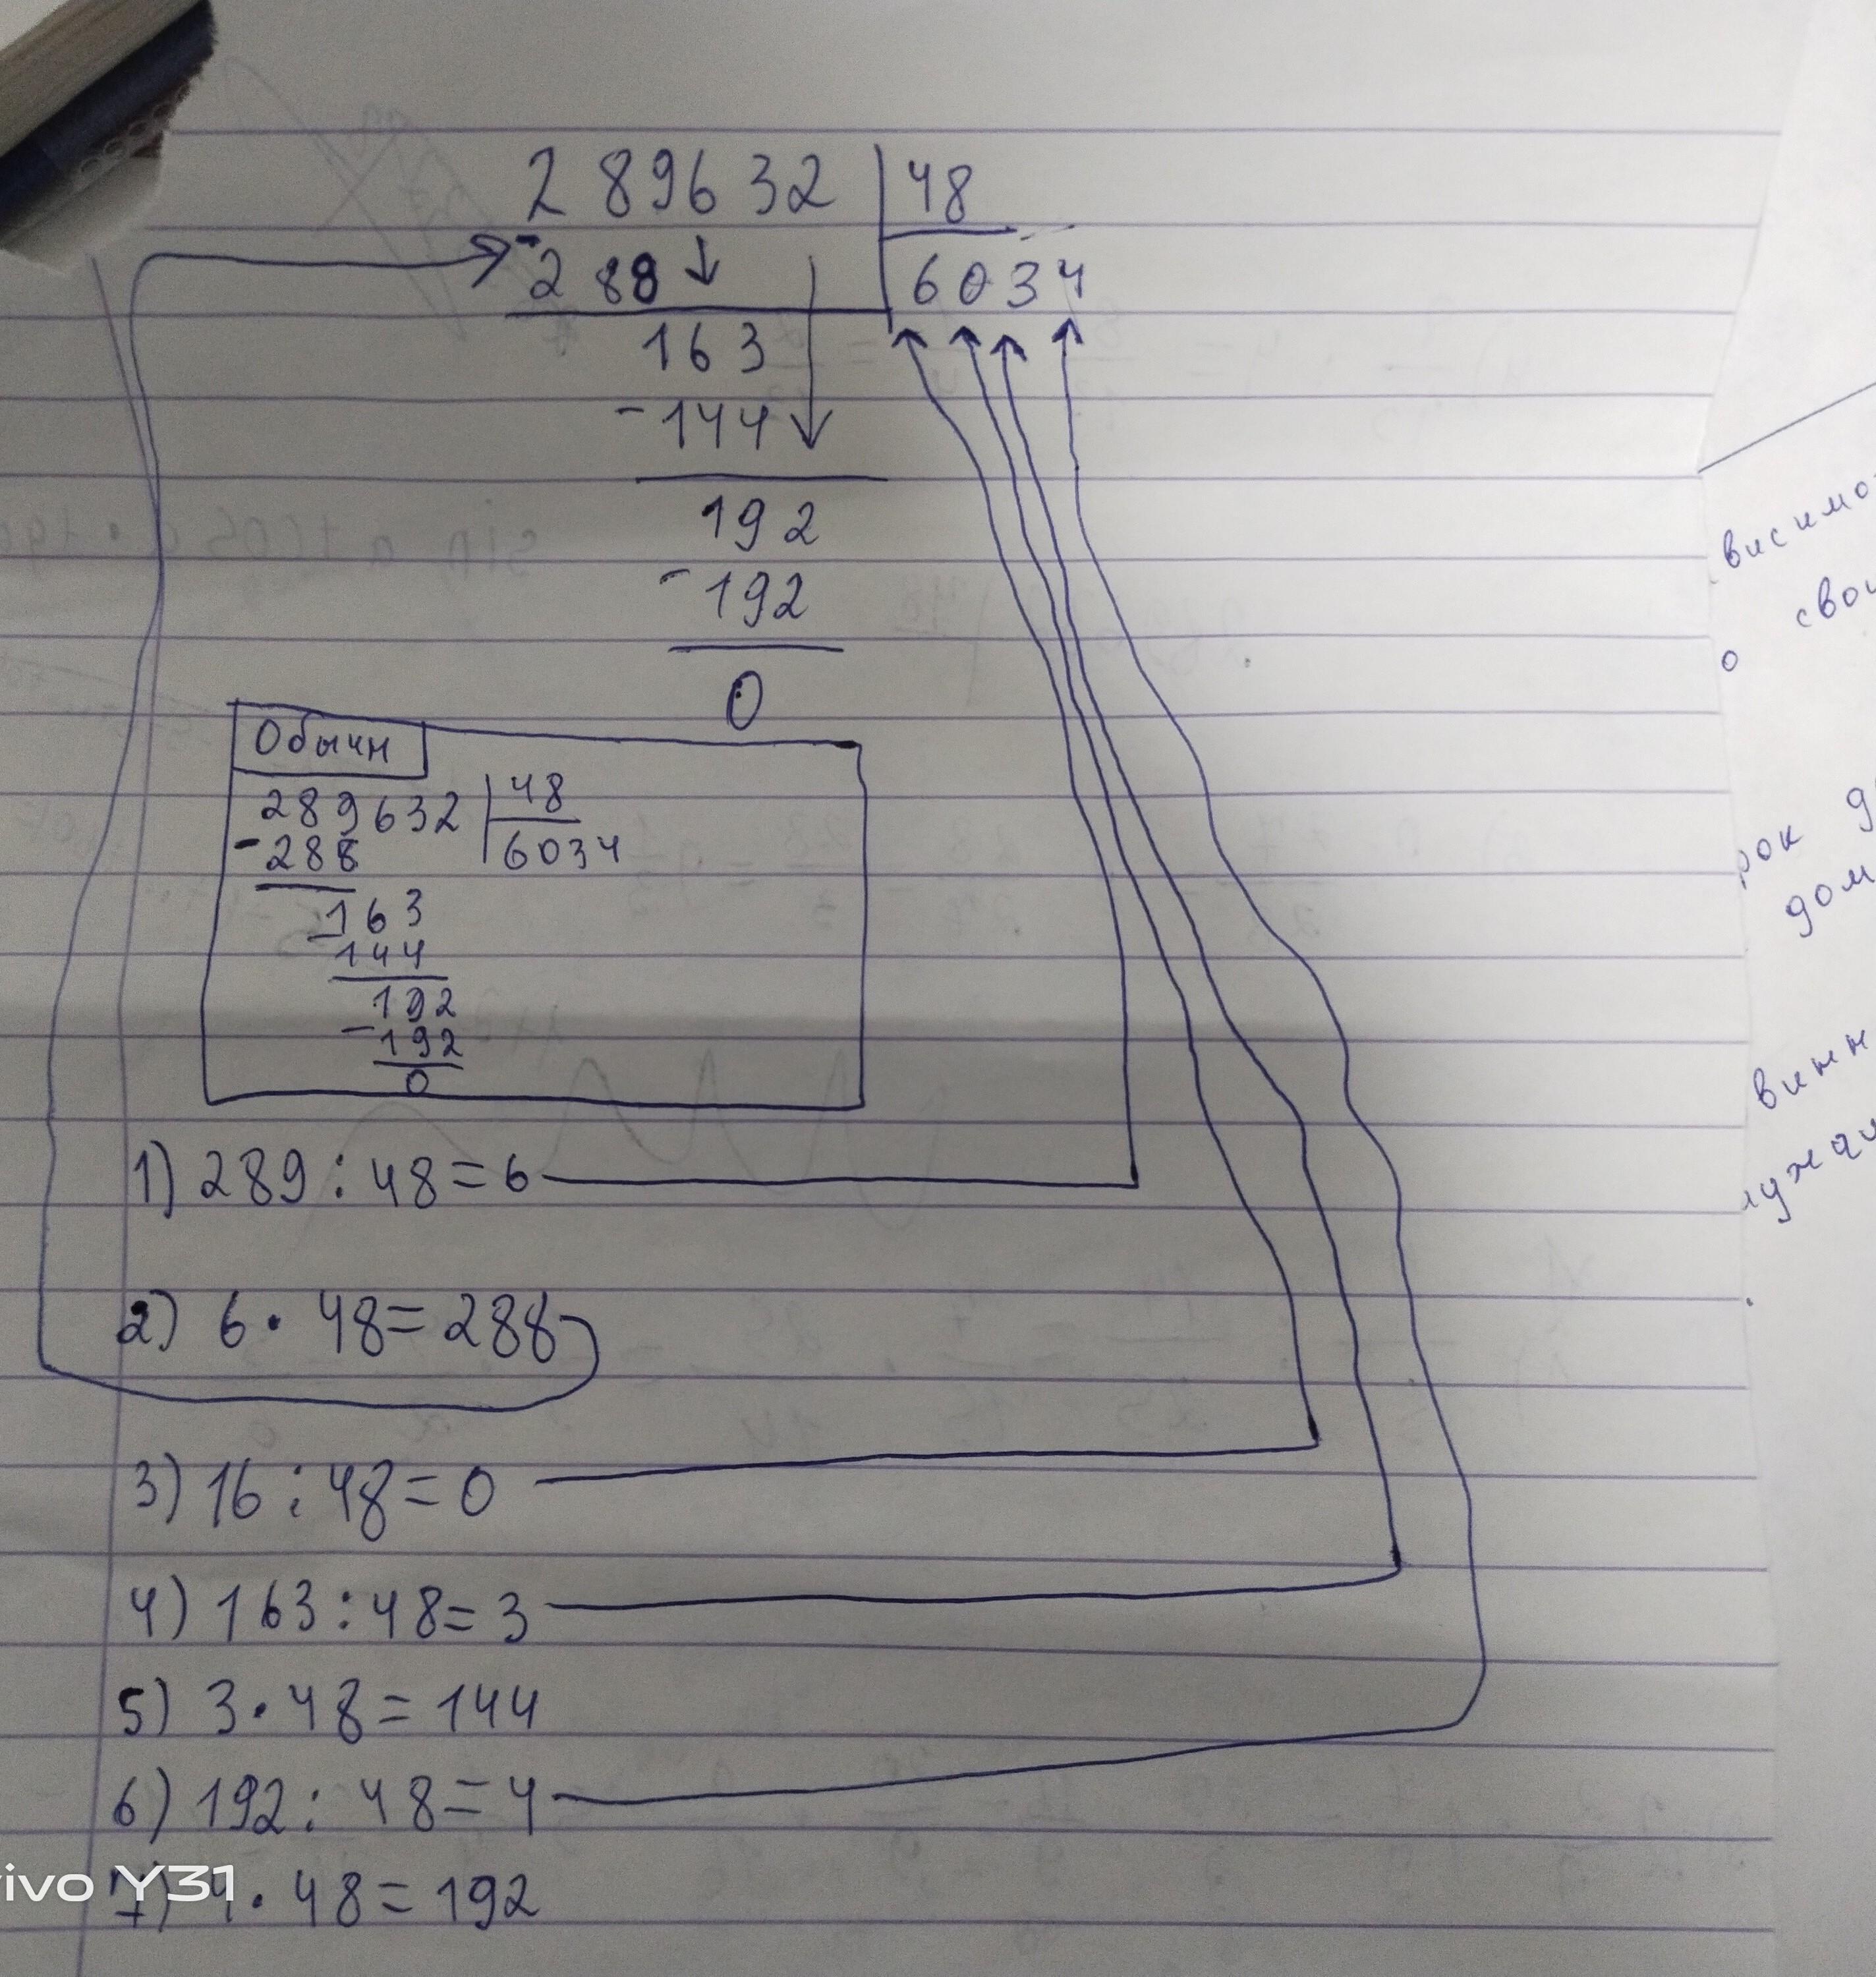 289632 48
-288 6034
163
-144
192
-192
0
Обычн
289632 48
-288 6034
163
-144
192
-192
0
1) 289 : 48 = 6
2) 6 · 48 = 288
3) 16 : 48 = 0
4) 163 : 48 = 3
5) 3 · 48 = 144
6) 192 : 48 = 4
7) 4 · 48 = 192
vivo Y31